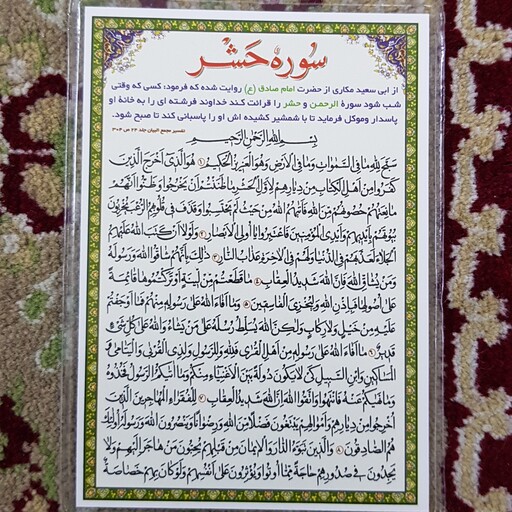 سورۀ حشر
از ابی سعید مکاری از حضرت امام صادق (ع) روایت شده که فرمود: کسی که وقتی
شب شود سورۀ الرحمن و حشر را قرائت کند خداوند فرشته ای را به خانۀ او
پاسدار وموکل فرماید تا با شمشیر کشیده اش او را پاسبانی کند تا صبح شود.
تفسیر مجمع البیان جلد ۲۴ ص ۳۰۳
بِسْمِ اللهِ الرَّحْمنِ الرَّحيمِ
سَبَّحَ لِلهِ مَا فِی السَّمٰوَاتِ وَمَا فِی الْاَرْضِ وَهُوَ الْعَزِیزُ الْحَکِیمُ ۱ هُوَ الَّذِی اَخْرَجَ الَّذِینَ
کَفَرُوا مِنْ اَهْلِ الْکِتَابِ مِنْ دِیَارِهِمْ لِاَوَّلِ الْحَشْرِ مَا ظَنَنْتُمْ اَنْ یَخْرُجُوا وَظَنُّوا اَنَّهُمْ
مَانِعَتُهُمْ حُصُونُهُمْ مِنَ اللهِ فَاَتٰیهُمُ اللهُ مِنْ حَیْثُ لَمْ یَحْتَسِبُوا وَقَذَفَ فِی قُلُوبِهِمُ الرُّعْبَ یُخْرِبُونَ
بُیُوتَهُمْ بِاَیْدِیهِمْ وَاَیْدِی الْمُؤْمِنِینَ فَاعْتَبِرُوا یَا اُولِی الْاَبْصَارِ ۲ وَلَوْلَا اَنْ کَتَبَ اللهُ عَلَیْهِمُ
الْجَلَاءَ لَعَذَّبَهُمْ فِی الدُّنْیَا وَلَهُمْ فِی الْاٰخِرَةِ عَذَابُ النَّارِ ۳ ذٰلِکَ بِاَنَّهُمْ شَاقُّوا اللهَ وَرَسُولَهُ
وَمَنْ یُشَاقِّ اللهَ فَاِنَّ اللهَ شَدِیدُ الْعِقَابِ ۴ مَا قَطَعْتُمْ مِنْ لِینَةٍ اَوْ تَرَکْتُمُوهَا قَائِمَةً
عَلٰی اُصُولِهَا فَبِاِذْنِ اللهِ وَلِیُخْزِیَ الْفَاسِقِینَ ۵ وَمَا اَفَاءَ اللهُ عَلٰی رَسُولِهِ مِنْهُمْ فَمَا اَوْجَفْتُمْ
عَلَیْهِ مِنْ خَیْلٍ وَلَا رِکَابٍ وَلٰکِنَّ اللهَ یُسَلِّطُ رُسُلَهُ عَلٰی مَنْ یَشَاءُ وَاللهُ عَلٰی کُلِّ شَیْءٍ
قَدِیرٌ ۶ مَا اَفَاءَ اللهُ عَلٰی رَسُولِهِ مِنْ اَهْلِ الْقُرٰی فَلِلّٰهِ وَلِلرَّسُولِ وَلِذِی الْقُرْبٰی وَالْیَتَامٰی وَ
الْمَسَاکِینِ وَابْنِ السَّبِیلِ کَیْ لَا یَکُونَ دُولَةً بَیْنَ الْاَغْنِیَاءِ مِنْکُمْ وَمَا اٰتٰیکُمُ الرَّسُولُ فَخُذُوهُ
وَمَا نَهٰیکُمْ عَنْهُ فَانْتَهُوا وَاتَّقُوا اللهَ اِنَّ اللهَ شَدِیدُ الْعِقَابِ ۷ لِلْفُقَرَاءِ الْمُهَاجِرِینَ الَّذِینَ
اُخْرِجُوا مِنْ دِیَارِهِمْ وَاَمْوَالِهِمْ یَبْتَغُونَ فَضْلًا مِنَ اللهِ وَرِضْوَانًا وَیَنْصُرُونَ اللهَ وَرَسُولَهُ اُولٰئِکَ
هُمُ الصَّادِقُونَ ۸ وَالَّذِینَ تَبَوَّءُو الدَّارَ وَالْاِیمَانَ مِنْ قَبْلِهِمْ یُحِبُّونَ مَنْ هَاجَرَ اِلَیْهِمْ وَلَا
یَجِدُونَ فِی صُدُورِهِمْ حَاجَةً مِمَّا اُوتُوا وَیُؤْثِرُونَ عَلٰی اَنْفُسِهِمْ وَلَوْ کَانَ بِهِمْ خَصَاصَةٌ